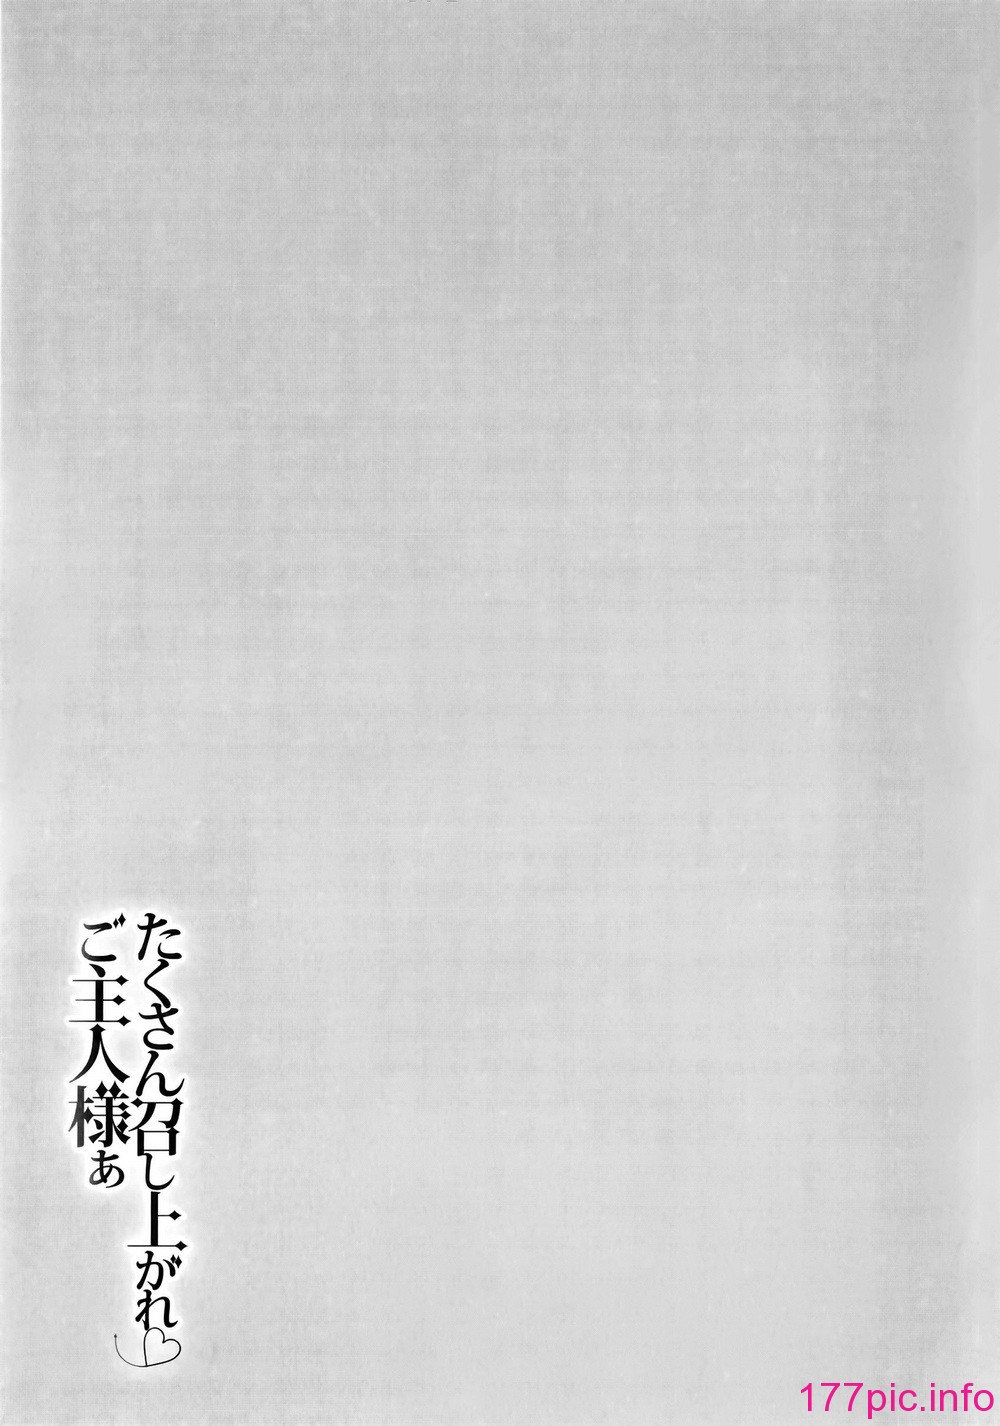 たくさん召し上がれ♡
ご主人様ぁ
177pic.info